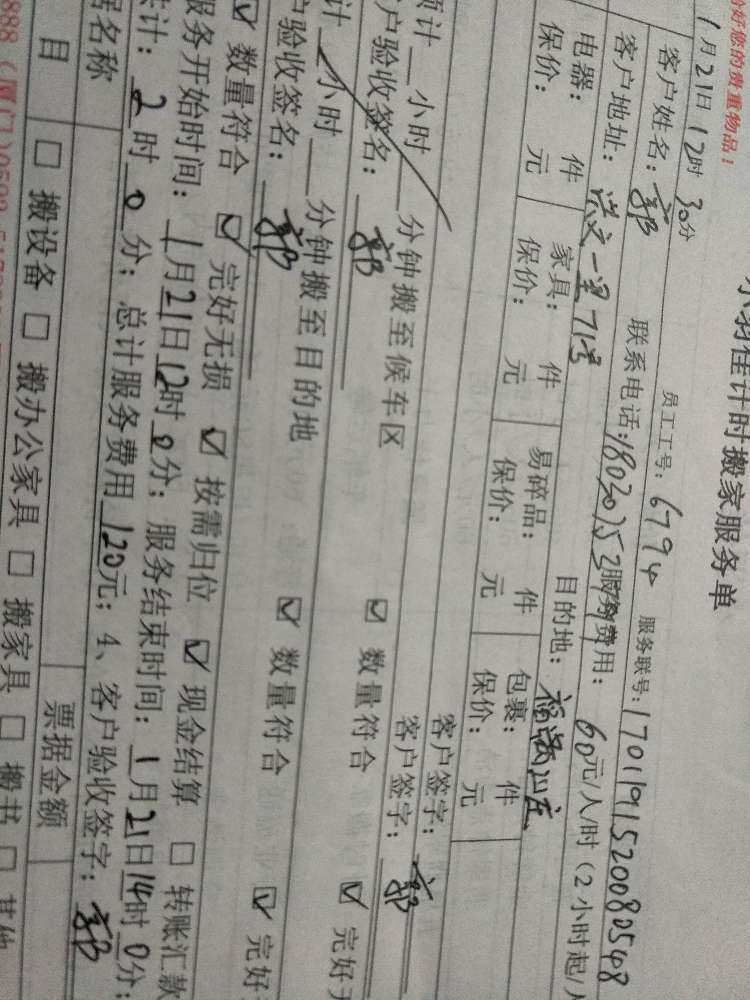 计时搬家服务单
好您的贵重物品！
员工工号：6794 服务联号：1701191520080548
1月21日12时30分
客户姓名：郭 联系电话：1803075 服务费用：60元/人/时（2小时起/
客户地址：洪文一里71号 目的地：
电器： 件 家具： 件 易碎品： 件 包裹： 件
保价： 元 保价： 元 保价： 元 保价： 元
客户签字：
计 小时 分钟搬至候车区 客户签字：郭
户验收签名：郭 ☑ 数量符合 ☑ 完好
计 2小时 分钟搬至目的地
户验收签名：郭 ☑ 数量符合 ☑ 完好
☑ 数量符合 ☑ 完好无损 ☑ 按需归位 ☑ 现金结算 □ 转账汇款
服务开始时间：1月21日12时0分；服务结束时间：1月21日14时0分；
计：2时0分；总计服务费用120元；4、客户验收签字：郭
据名称 票据金额
目 □ 搬设备 □ 搬办公家具 □ 搬家具 □ 搬书 □ 其他